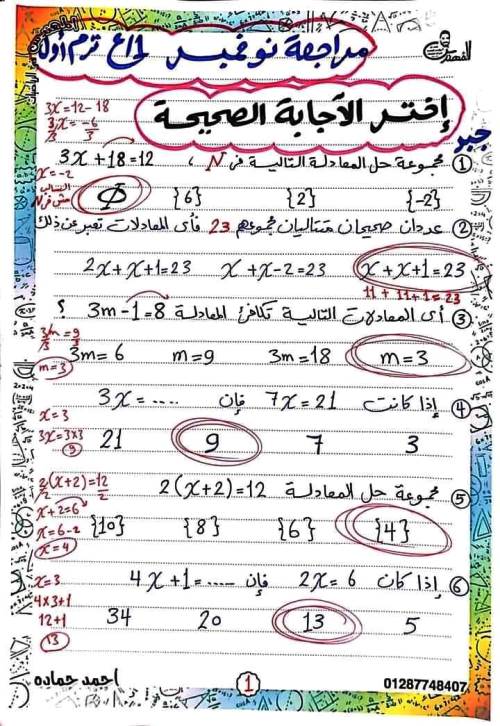 مراجعة نوفمبر 1/ع ترم أول
إختر الأجابة الصحيحة
جبر
3x = 12 - 18
3x/3 = -6/3
x = -2
① مجموعة حل المعادلة التالية فى N ، 3x + 18 = 12
{-2} {2} {6} Φ
② عددان صحيحان متتاليان مجموعهم 23 فأى المعادلات تعبر عن ذلك
x + x + 1 = 23 x + x - 2 = 23 2x + x + 1 = 23
11 + 11 + 1 = 23
③ أى المعادلات التالية تكافئ المعادلة 3m - 1 = 8 ؟
3m/3 = 9/3
m = 3
m = 3 3m = 18 m = 9 3m = 6
④ إذا كانت 7x = 21 فإن 3x = ....
x = 3
3x = 3x3
9
3 7 9 21
⑤ مجموعة حل المعادلة 2(x+2) = 12
2(x+2)/2 = 12/2
x + 2 = 6
x = 6 - 2
x = 4
{4} {6} {8} {10}
⑥ إذا كان 2x = 6 فإن 4x + 1 = ....
x = 3
4x3+1
12+1
13
5 13 20 34
احمد حماده
1
01287748407